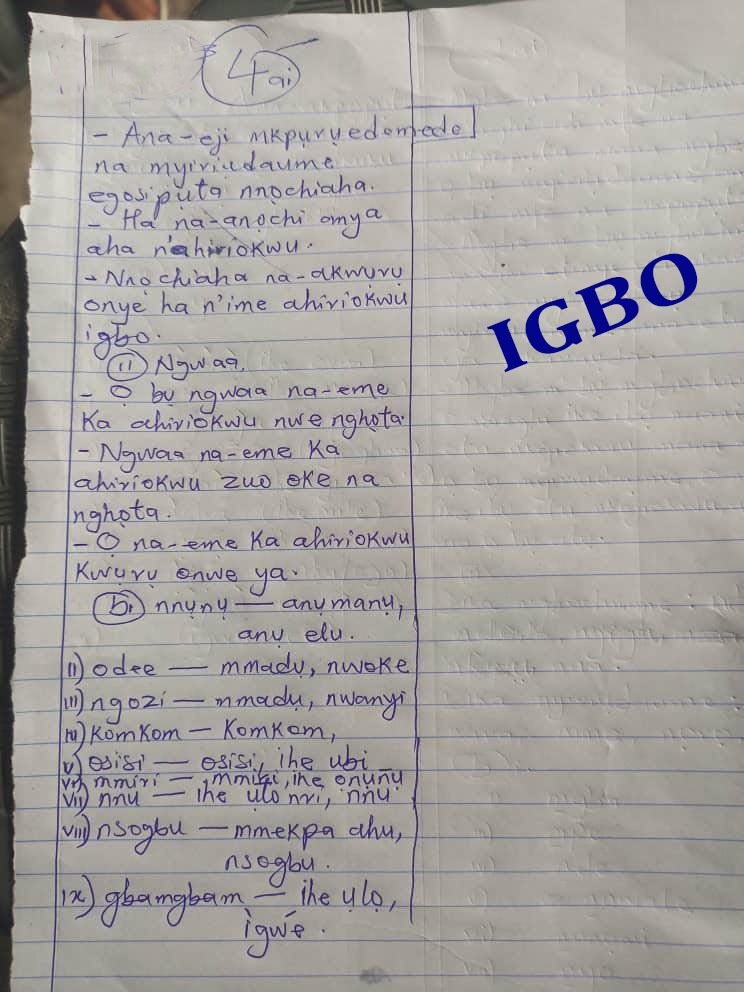 4ai
- Ana-eji mkpụrụedemede
na myiriụdaume
egosipụta nnọchiaha.
- Ha na-anọchi onya
aha n'ahiriokwu.
- Nnọchiaha na-akwụrụ
onye ha n'ime ahiriokwu
igbo.
IGBO
(ii) Ngwaa.
- Ọ bụ ngwaa na-eme
Ka ahiriokwu nwe nghọta.
- Ngwaa na-eme Ka
ahiriokwu zuo oke na
nghọta.
- Ọ na-eme Ka ahiriokwu
Kwụrụ onwe ya.
(bi) nnụnụ — anụmanụ,
anụ elu.
ii) odee — mmadụ, nwoke
iii) ngozi — mmadụ, nwanyi
iv) Komkom — Komkom,
v) osisi — osisi, ihe ubi
vi) mmiri — mmiri, ihe ọnụnụ
vii) nnu — ihe ụlo nri, nnu
viii) nsogbu — mmekpa ahu,
nsogbu.
ix) gbamgbam — ihe ụlọ,
ìgwé.